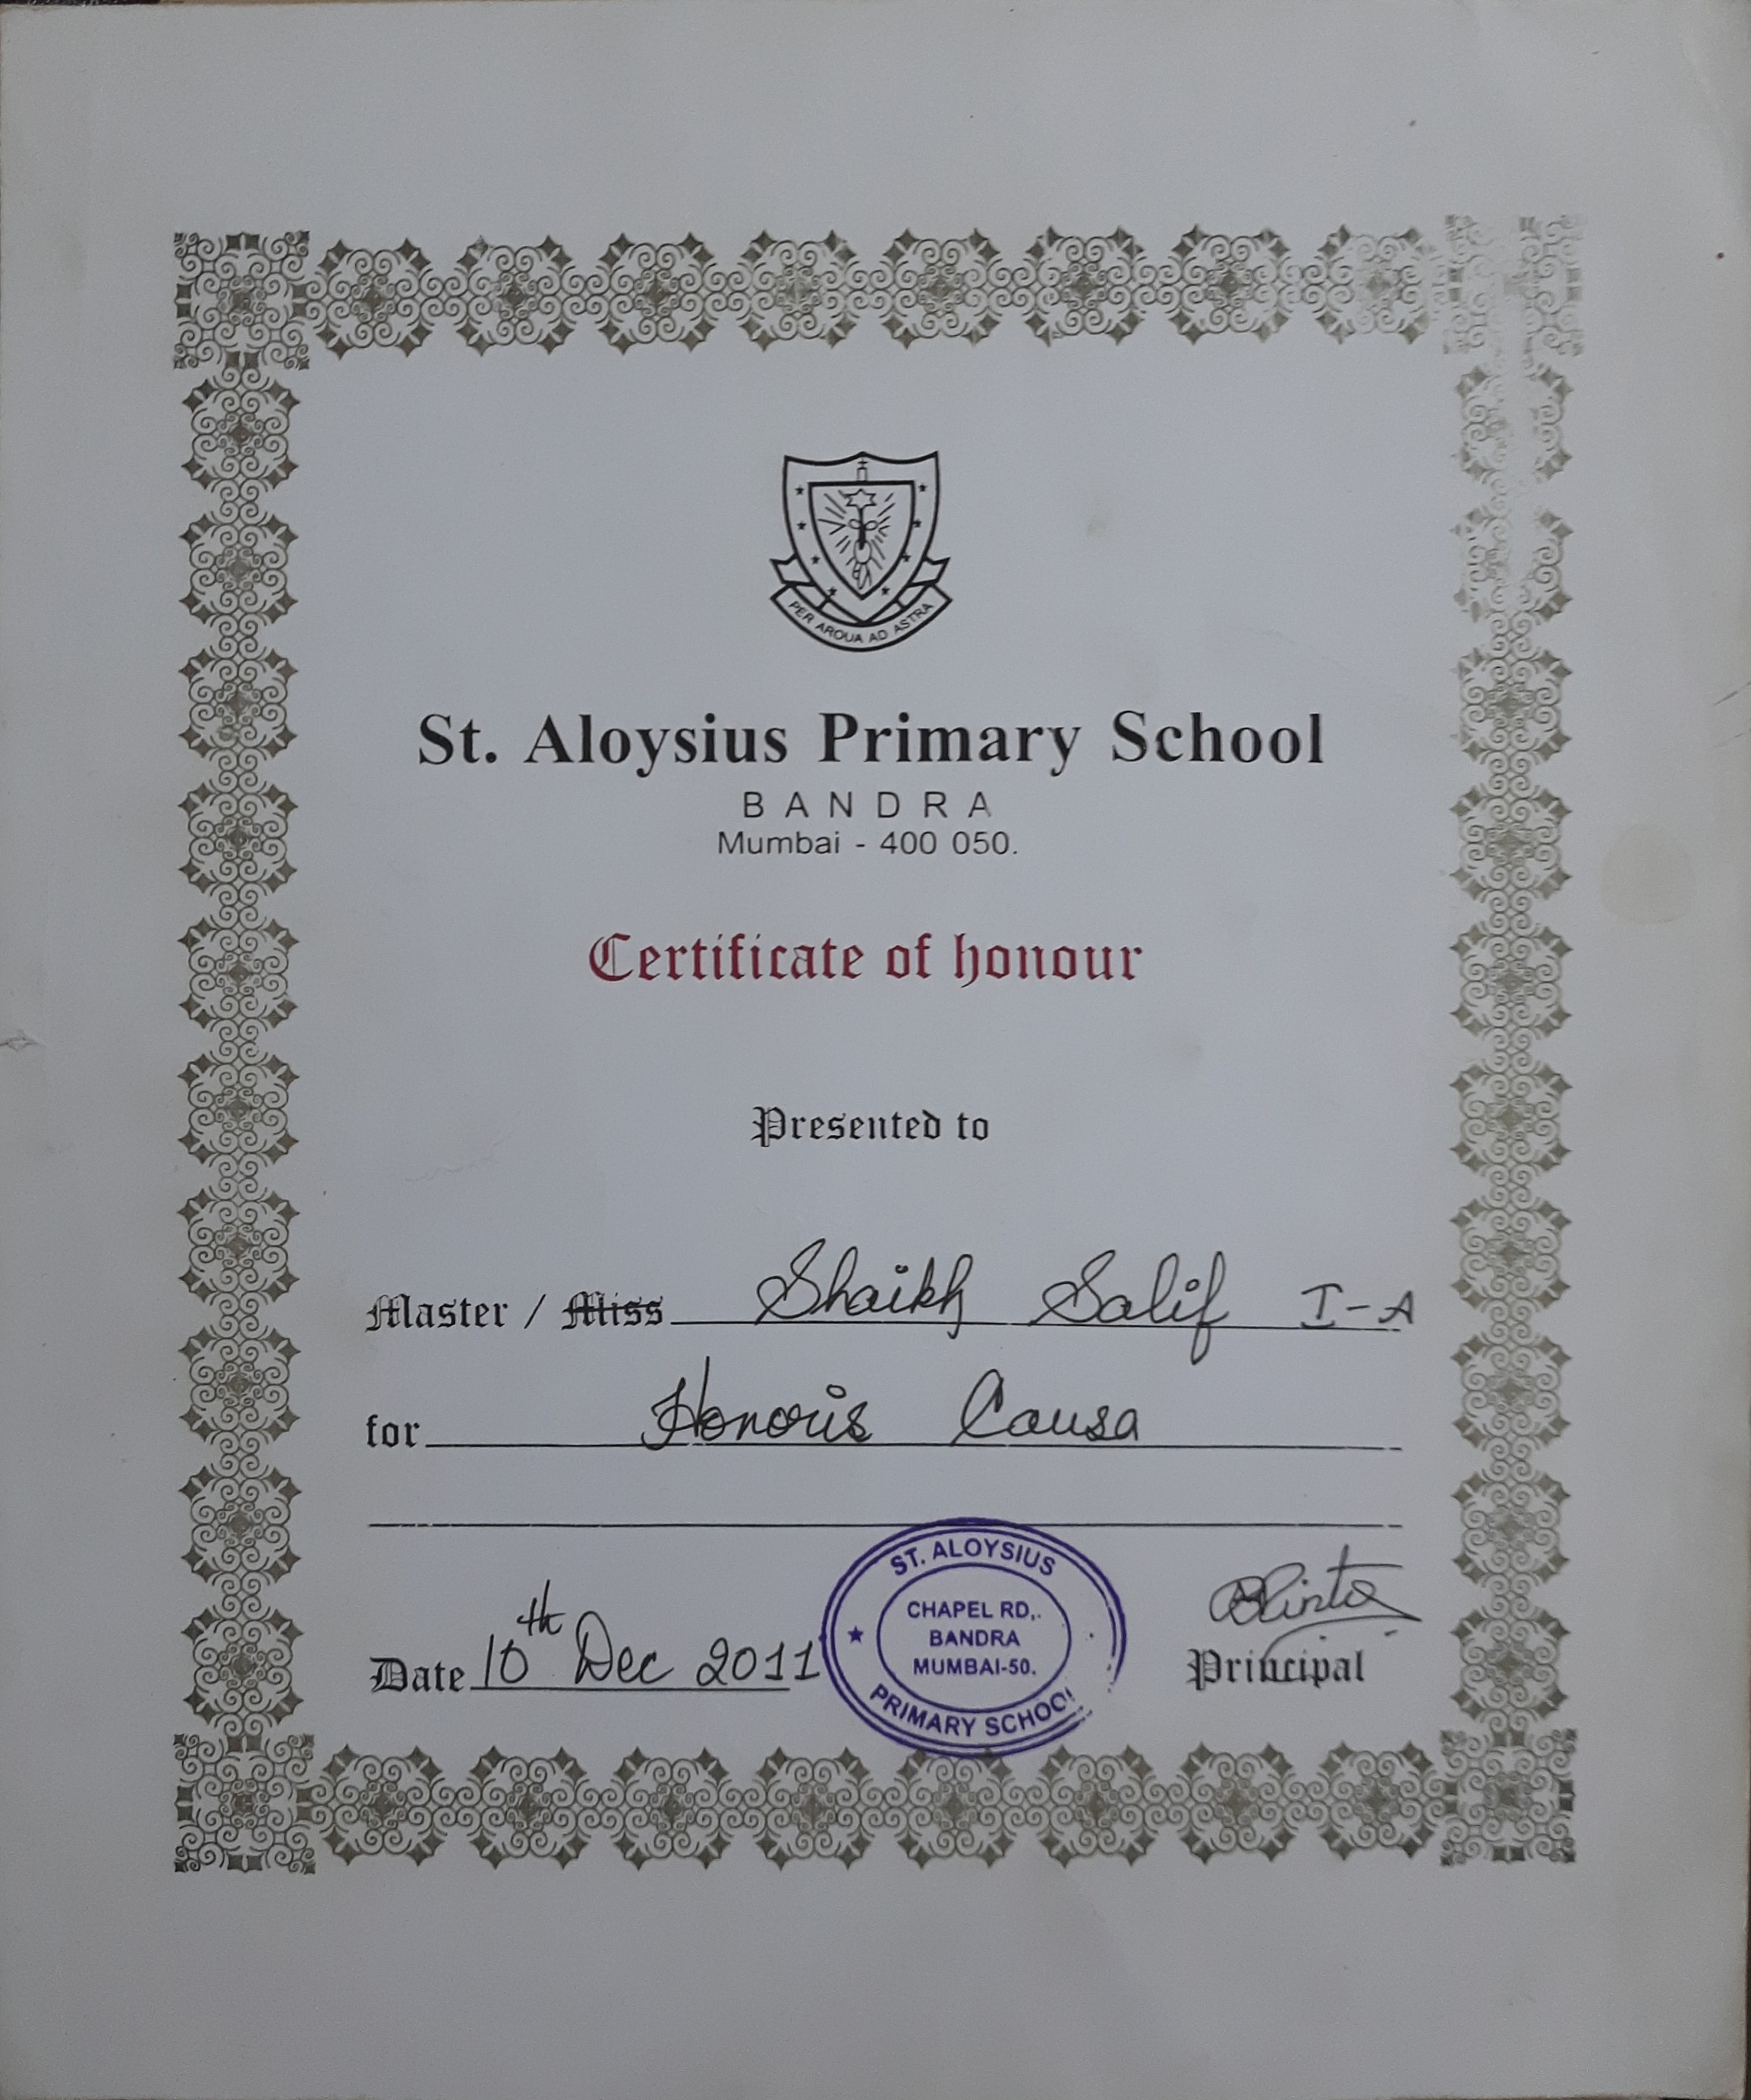 PER AROUA AD ASTRA
St. Aloysius Primary School
BANDRA
Mumbai - 400 050.
Certificate of honour
Presented to
Master / Miss Shaikh Salif I-A
for Honoris Causa
Date 10th Dec 2011
ST. ALOYSIUS
CHAPEL RD,.
BANDRA
MUMBAI-50.
PRIMARY SCHOOL
Principal